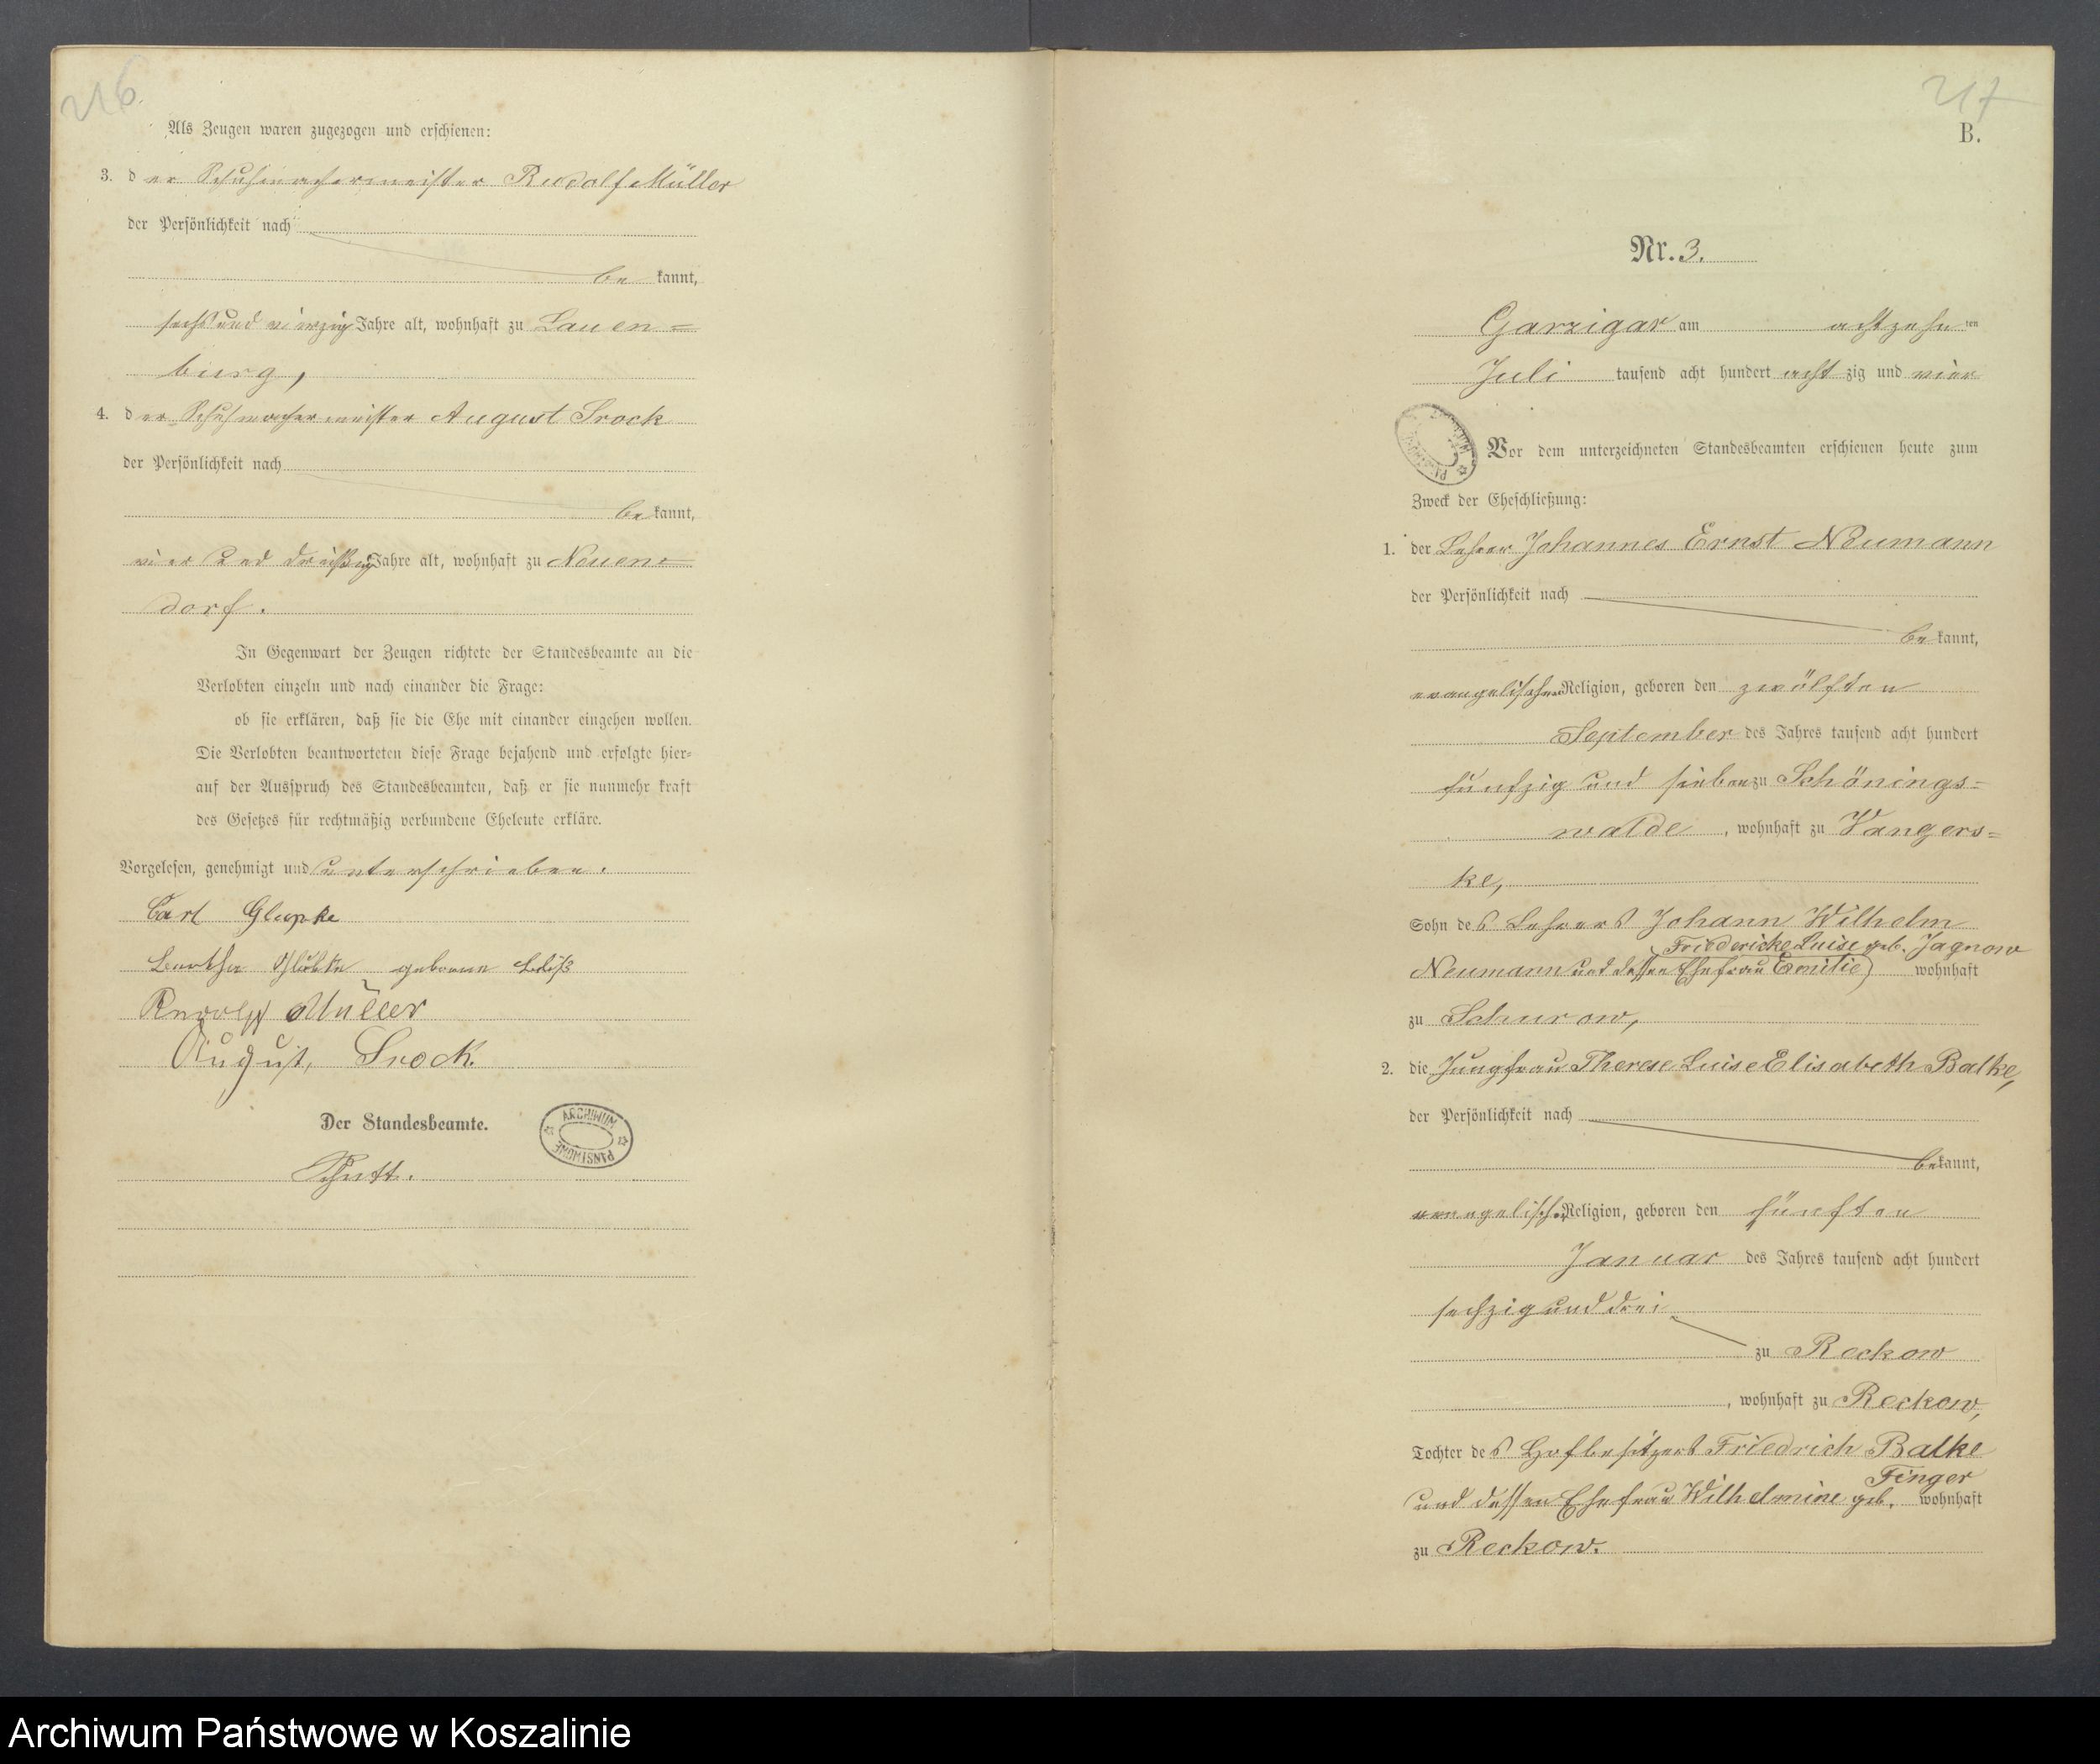 216.
Als Zeugen waren zugezogen und erschienen:
3. der Schuhmachermeister Rudolf Müller
der Persönlichkeit nach
be kannt,
sechs und vierzig Jahre alt, wohnhaft zu Lauen=
burg,
4. der Schuhmachermeister August Srock
der Persönlichkeit nach
be kannt,
vier und dreißig Jahre alt, wohnhaft zu Neuen=
dorf.
In Gegenwart der Zeugen richtete der Standesbeamte an die
Verlobten einzeln und nach einander die Frage:
ob sie erklären, daß sie die Ehe mit einander eingehen wollen.
Die Verlobten beantworteten diese Frage bejahend und erfolgte hier=
auf der Ausspruch des Standesbeamten, daß er sie nunmehr kraft
des Gesetzes für rechtmäßig verbundene Eheleute erkläre.
Vorgelesen, genehmigt und unterschrieben.
Carl Glupke
geborene
Rudolf Müller
August, Srock.
Der Standesbeamte.
ARCHIWUM PAŃSTWOWE
217
B.
Nr. 3.
Garzigar am achtzehn ten
Juli tausend acht hundert acht zig und vier
Vor dem unterzeichneten Standesbeamten erschienen heute zum
Zweck der Eheschließung:
1. der Lehrer Johannes Ernst Neumann
der Persönlichkeit nach
be kannt,
evangelischer Religion, geboren den zwölften
September des Jahres tausend acht hundert
fünfzig und sieben zu Schönings=
walde, wohnhaft zu Vangers=
ke,
Sohn des Lehrers Johann Wilhelm
Friedericke Luise geb. Jagnow
Neumann und dessen Ehefrau Emilie wohnhaft
zu Schurow,
2. die Jungfrau Therese Luise Elisabeth Balke,
der Persönlichkeit nach
be kannt,
evangelischer Religion, geboren den fünften
Januar des Jahres tausend acht hundert
sechzig und drei
zu Reckow
, wohnhaft zu Reckow,
Tochter des Hofbesitzers Friedrich Balke
Finger
und dessen Ehefrau Wilhelmine geb. wohnhaft
zu Reckow.
Archiwum Państwowe w Koszalinie